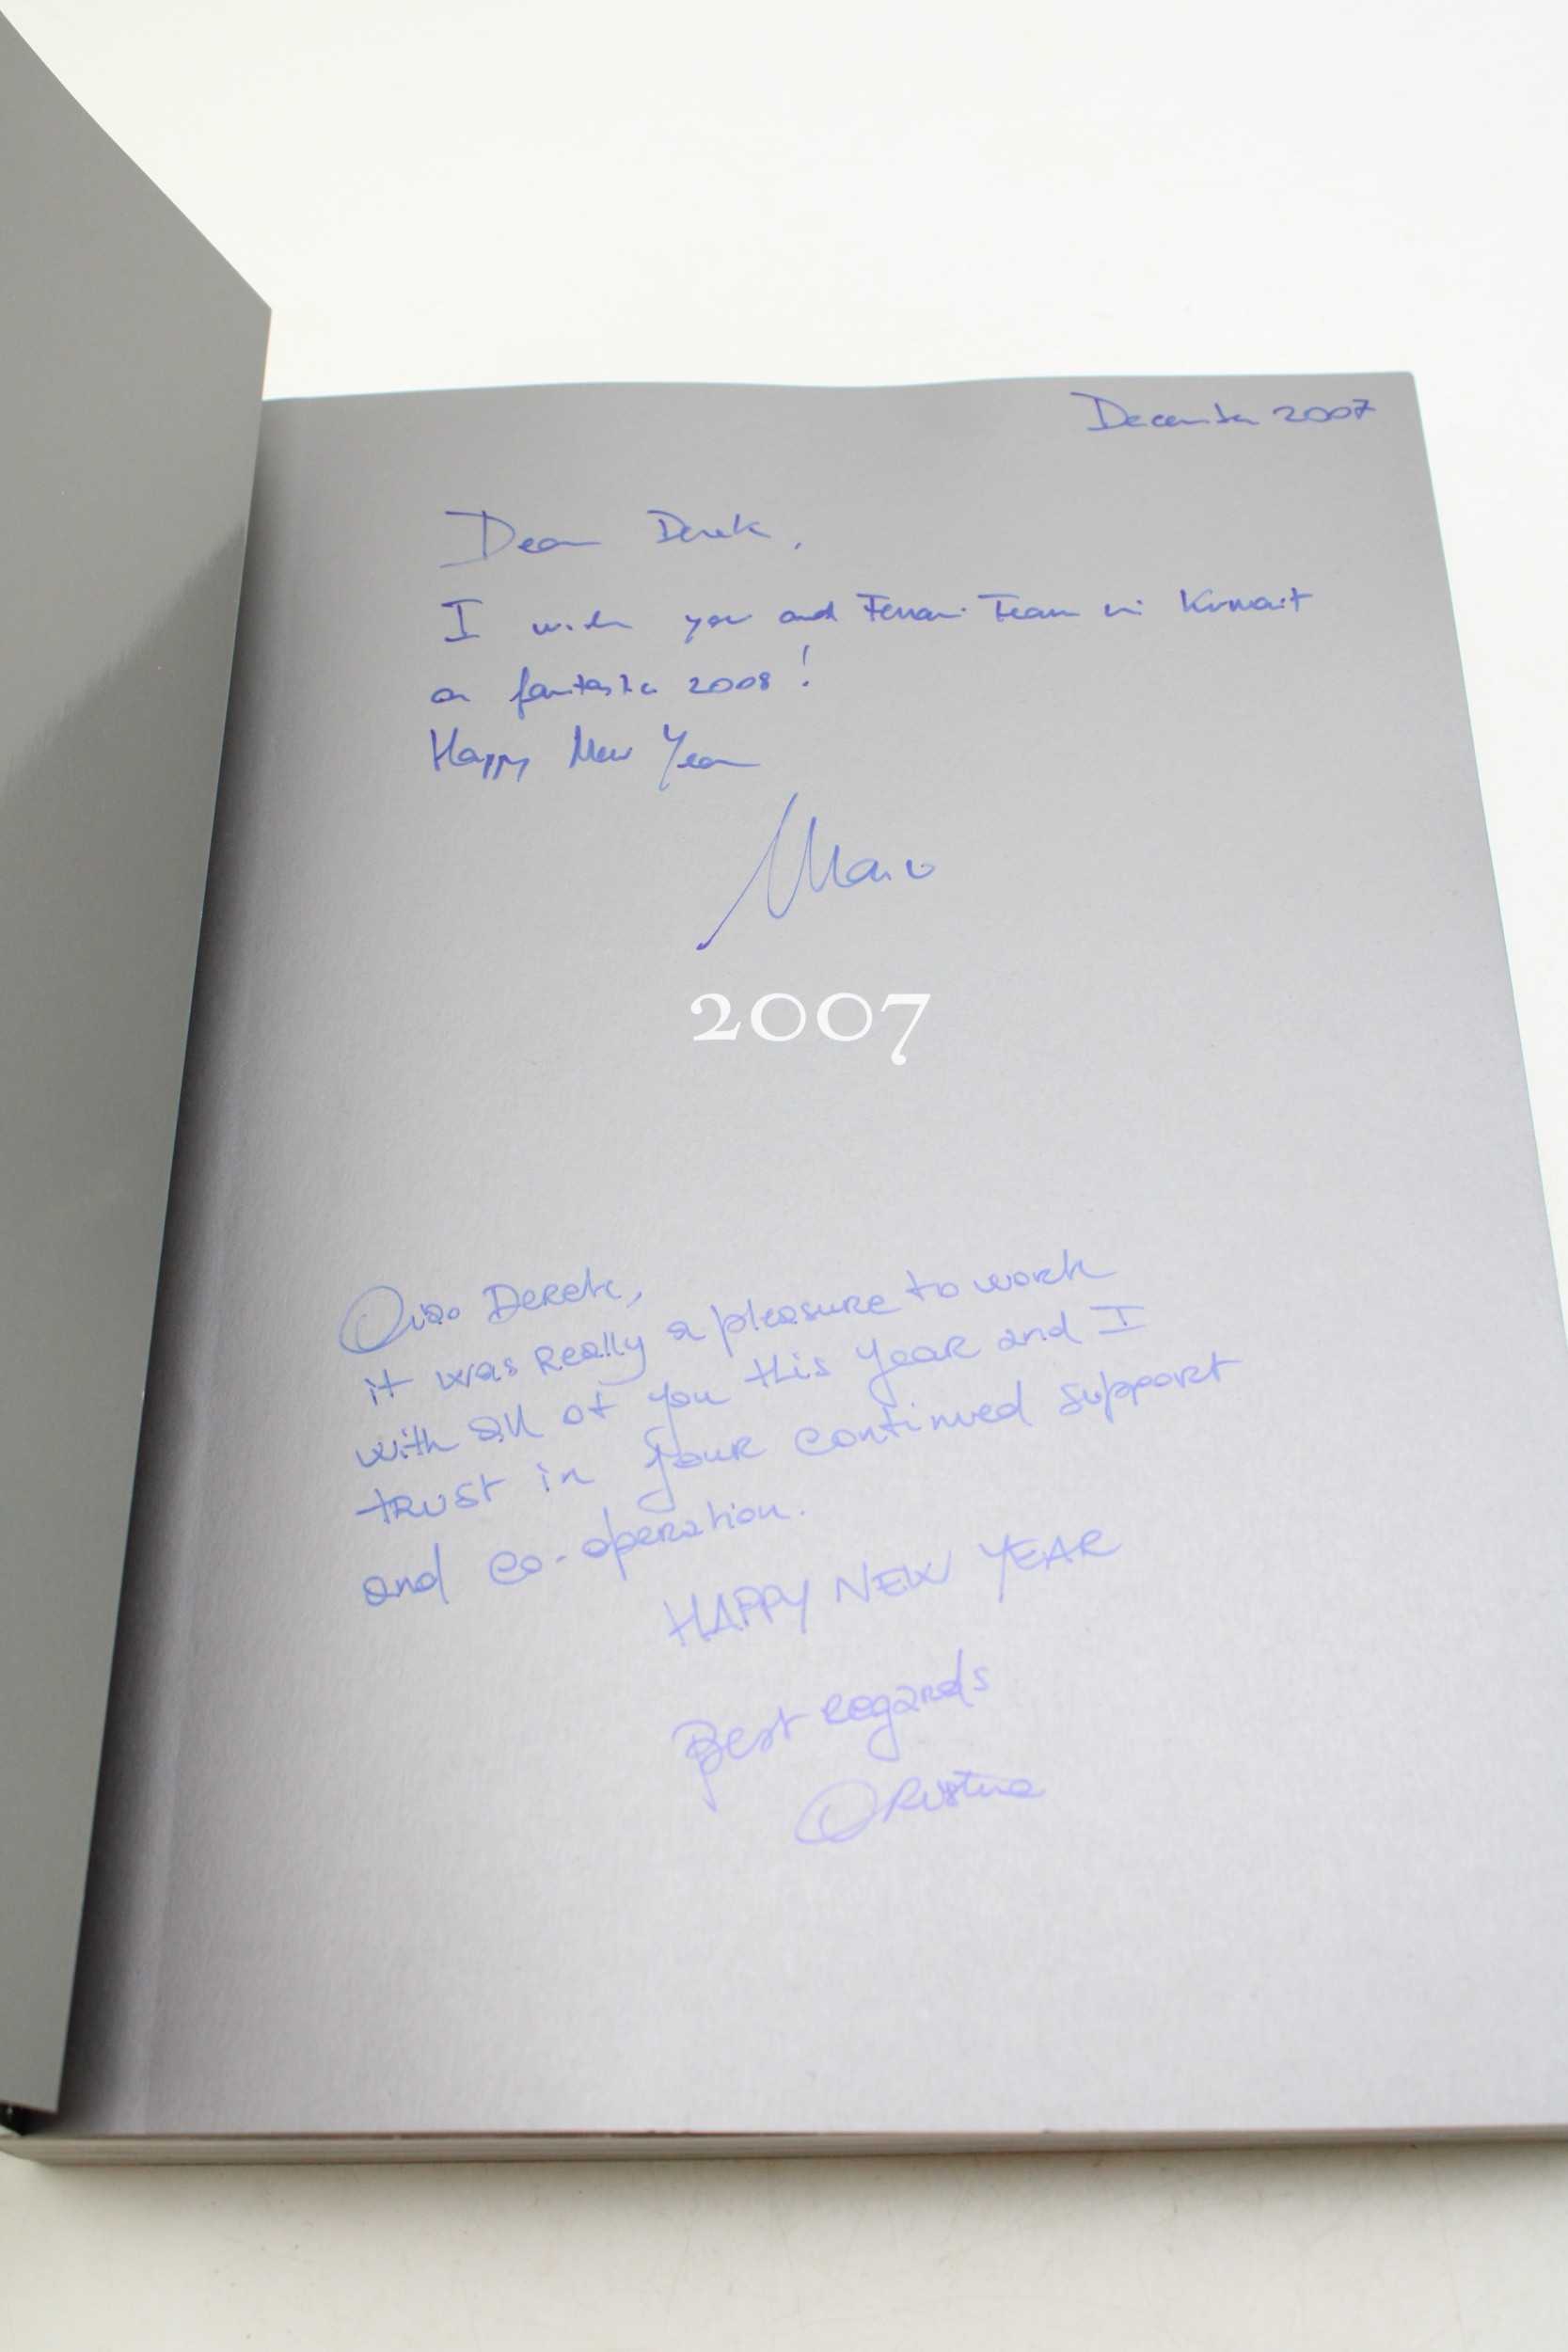 December 2007
Dear Derek,
I wish you and Ferrari Team in Kuwait
a fantastic 2008!
Happy New Year
2007
Ciao Derek,
it was really a pleasure to work
with all of you this year and I
trust in your continued support
and co-operation.
HAPPY NEW YEAR
Best regards
Cristina